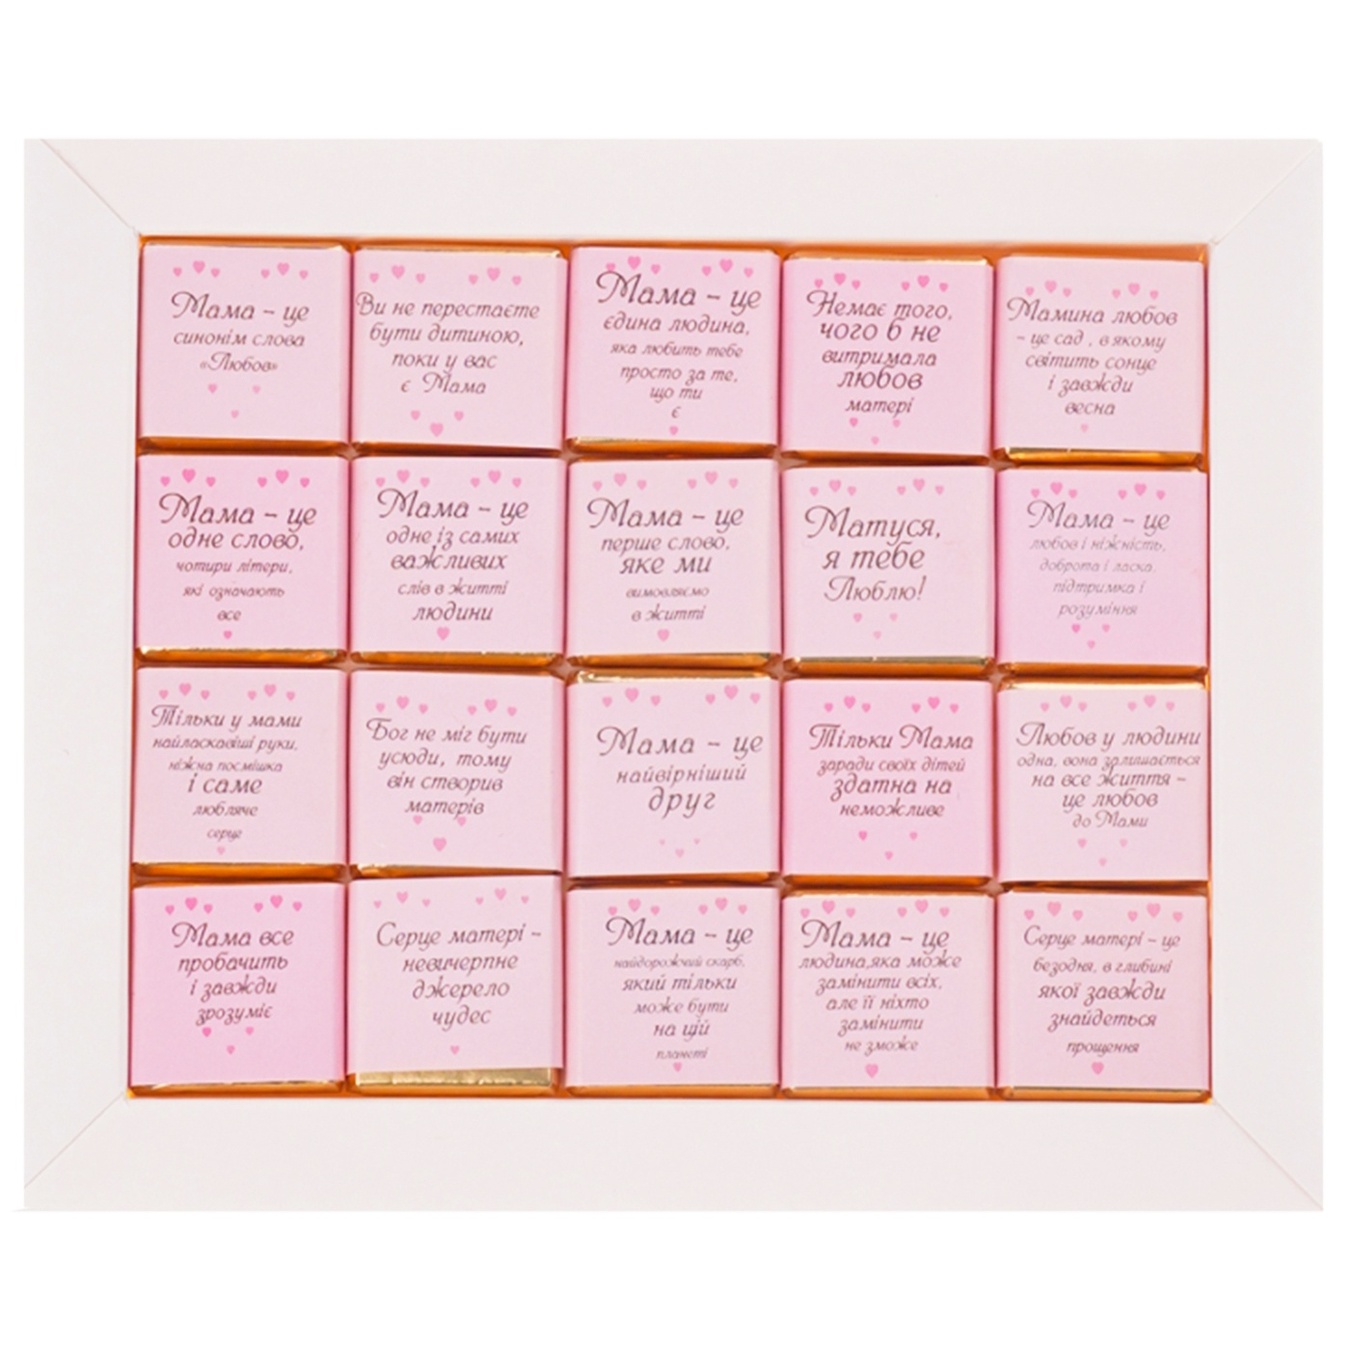 Мама – це
синонім слова
«Любов»
Ви не перестаєте
бути дитиною,
поки у вас
є Мама
Мама – це
єдина людина,
яка любить тебе
просто за те,
що ти
є
Немає того,
чого б не
витримала
любов
матері
Мамина любов
– це сад , в якому
світить сонце
і завжди
весна
Мама – це
одне слово,
чотири літери,
які означають
все
Мама – це
одне із самих
важливих
слів в житті
людини
Мама – це
перше слово,
яке ми
вимовляємо
в житті
Матуся,
я тебе
Люблю!
Мама – це
любов і ніжність,
доброта і ласка,
підтримка і
розуміння
Тільки у мами
найласкавіші руки,
ніжна посмішка
і саме
любляче
серце
Бог не міг бути
усюди, тому
він створив
матерів
Мама – це
найвірніший
друг
Тільки Мама
заради своїх дітей
здатна на
неможливе
Любов у людини
одна, вона залишається
на все життя –
це любов
до Мами
Мама все
пробачить
і завжди
зрозуміє
Серце матері –
невичерпне
джерело
чудес
Мама – це
найдорожчий скарб,
який тільки
може бути
на цій
планеті
Мама – це
людина,яка може
замінити всіх,
але її ніхто
замінити
не зможе
Серце матері – це
безодня, в глибині
якої завжди
знайдеться
прощення